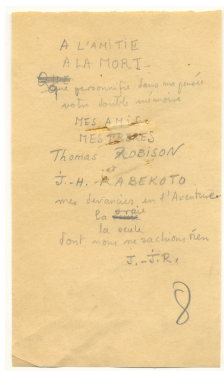 A L'AMITIE
A LA MORT.
que personnifie dans ma pensée
votre double mémoire
MES AMIS
MES FRERES
Thomas ROBISON
et
J.-H. RABEKOTO
mes devanciers en l'Aventure
la vraie
la seule
dont nous ne sachions rien
J.-J.R.
8